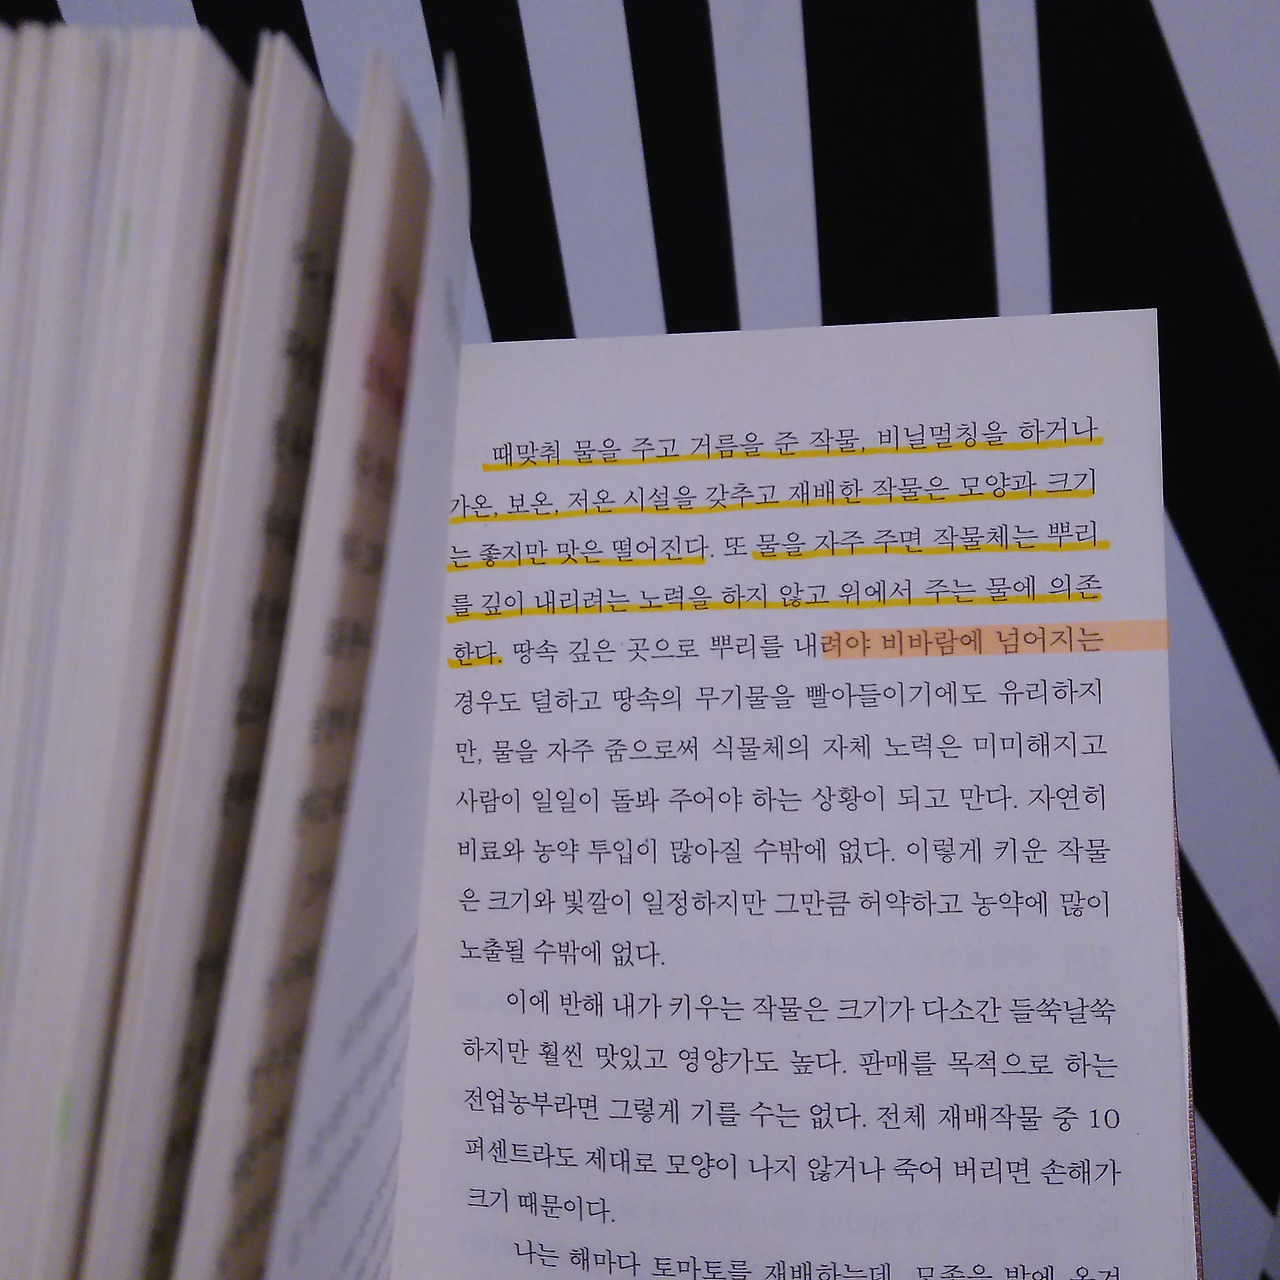 때맞춰 물을 주고 거름을 준 작물, 비닐멀칭을 하거나
가온, 보온, 저온 시설을 갖추고 재배한 작물은 모양과 크기
는 좋지만 맛은 떨어진다. 또 물을 자주 주면 작물체는 뿌리
를 깊이 내리려는 노력을 하지 않고 위에서 주는 물에 의존
한다. 땅속 깊은 곳으로 뿌리를 내려야 비바람에 넘어지는
경우도 덜하고 땅속의 무기물을 빨아들이기에도 유리하지
만, 물을 자주 줌으로써 식물체의 자체 노력은 미미해지고
사람이 일일이 돌봐 주어야 하는 상황이 되고 만다. 자연히
비료와 농약 투입이 많아질 수밖에 없다. 이렇게 키운 작물
은 크기와 빛깔이 일정하지만 그만큼 허약하고 농약에 많이
노출될 수밖에 없다.
이에 반해 내가 키우는 작물은 크기가 다소간 들쑥날쑥
하지만 훨씬 맛있고 영양가도 높다. 판매를 목적으로 하는
전업농부라면 그렇게 기를 수는 없다. 전체 재배작물 중 10
퍼센트라도 제대로 모양이 나지 않거나 죽어 버리면 손해가
크기 때문이다.
나는 해마다 토마토를 재배하는데, 모종을 밭에